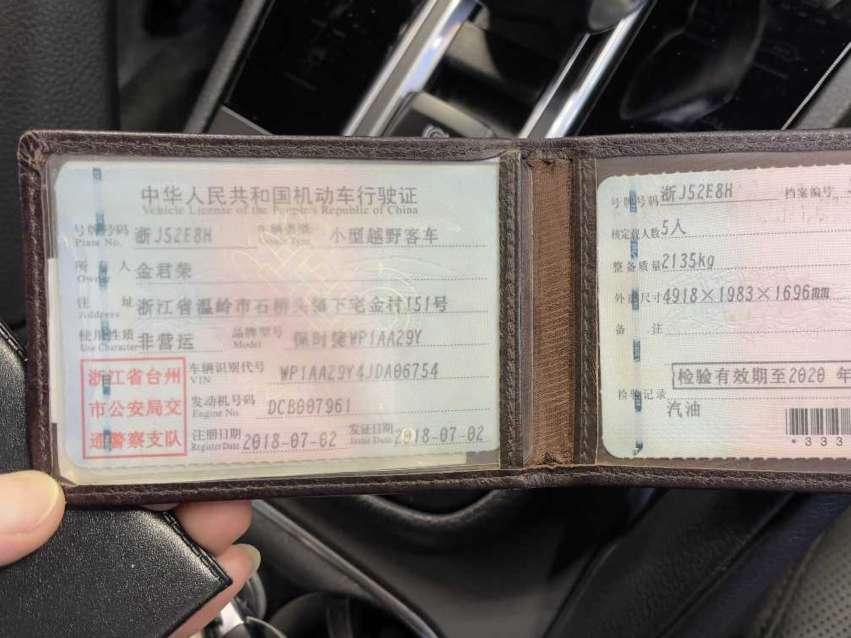 中华人民共和国机动车行驶证
Vehicle License of the People's Republic of China
号牌号码 浙J52E8H 车辆类型 小型越野客车
Plate No.
所有人 金君荣
Owner
住址 浙江省温岭市石桥头镇下宅金村151号
Address
使用性质 非营运 品牌型号 保时捷WP1AA29Y
Use Character Model
浙江省台州
市公安局交
通警察支队
车辆识别代号 WP1AA29Y4JDA06754
VIN
发动机号码 DCB007961
Engine No.
注册日期 2018-07-02 发证日期 2018-07-02
Register Date Issue Date
号牌号码 浙J52E8H 档案编号
核定载人数 5人
整备质量 2135kg
外廓尺寸 4918×1983×1696mm
备注
检验有效期至2020 年
检验记录
汽油
*333